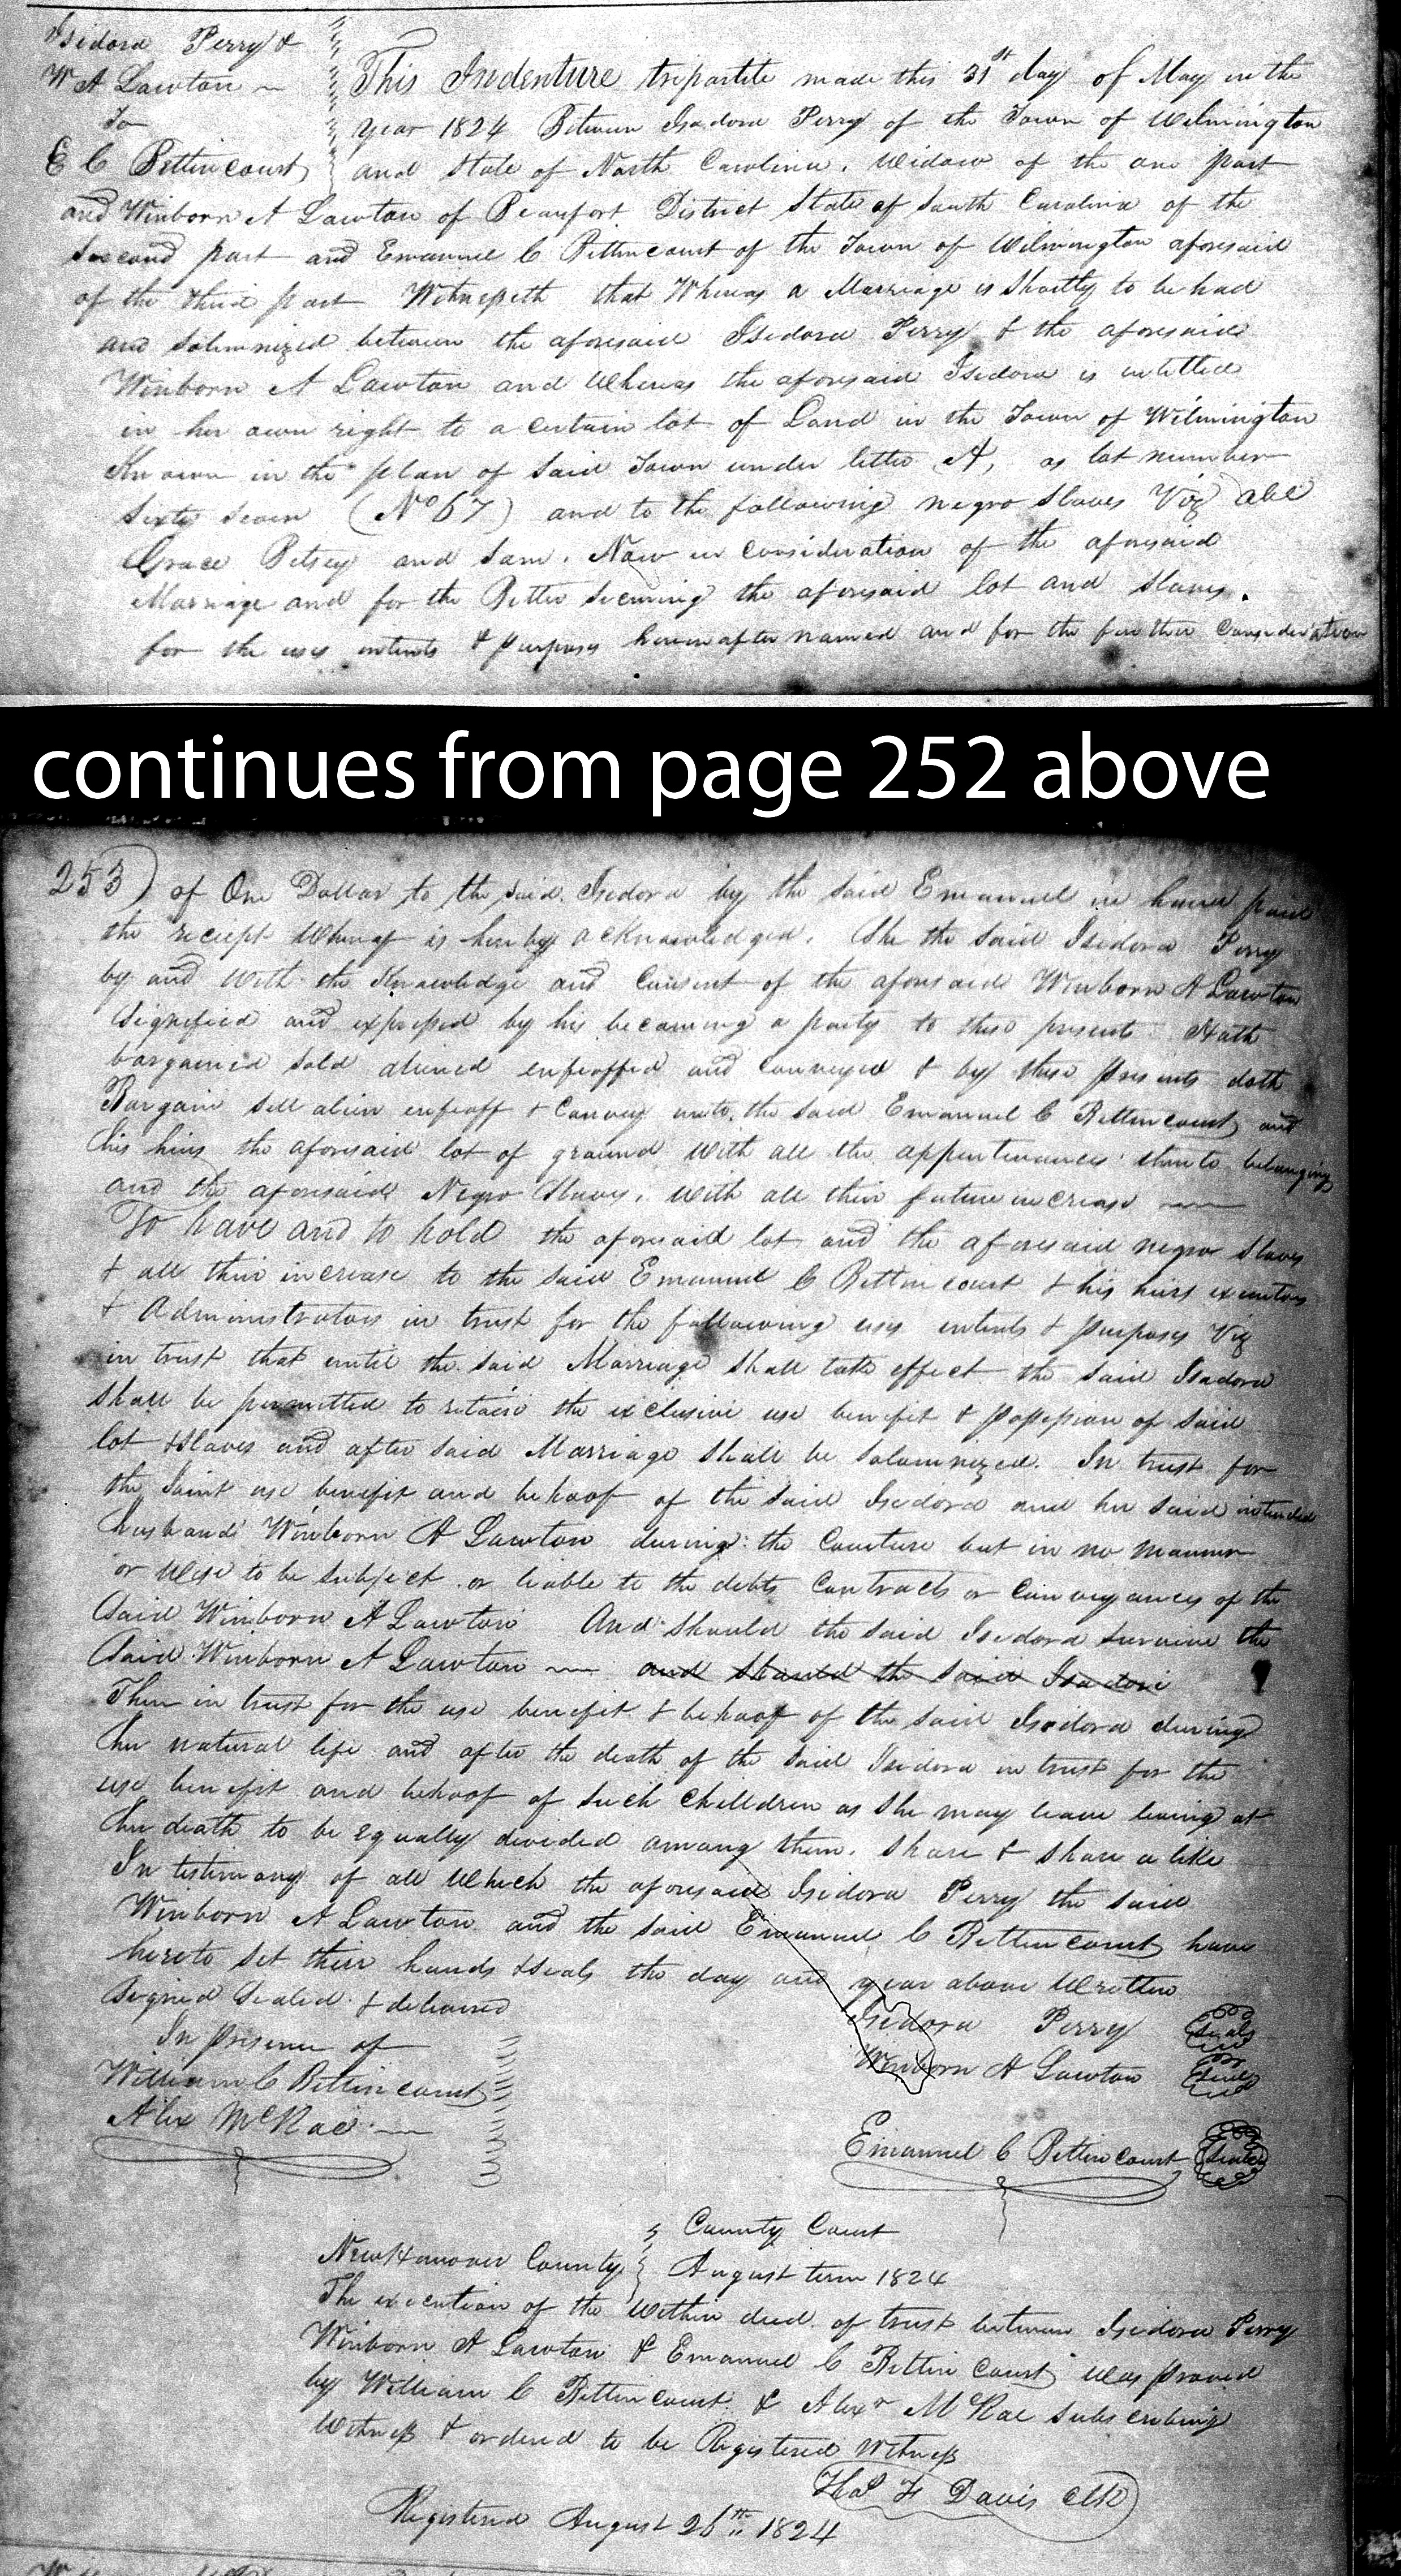 Isidora Perry &
W A Lawton
To
E C Bettincourt
This Indenture tripartite made this 31st day of May in the
year 1824 Between Isadora Perry of the Town of Wilmington
and State of North Carolina. Widow of the one part
and Winborn A Lawton of Beaufort District State of South Carolina of the
Second part and Emanuel C Bettincourt of the Town of Wilmington aforesaid
of the third part Witnesseth that Whereas a Marriage is Shortly to be had
and Solemnized between the aforesaid Isidora Perry & the aforesaid
Winborn A Lawton and Whereas the aforesaid Isidora is intitled
in her own right to a certain lot of Land in the Town of Wilmington
Known in the plan of Said Town under letter A, as lot number
Sixty Seven (No 67) and to the following negro Slaves Viz Abel
Grace Betsey and Sam. Now in Consideration of the aforesaid
Marriage and for the Better Securing the aforesaid lot and Slaves.
for the uses intents & purposes hereinafter named and for the further Consideration
continues from page 252 above
253) of One Dollar to the said Isidora by the said Emanuel in hand paid
the receipt Whereof is hereby acknowledged. She the said Isidora Perry
by and With the Knowledge and Consent of the aforesaid Winborn A Lawton
Signified and expressed by his becoming a party to these presents Hath
bargained Sold aliened enfeoffed and Conveyed & by these presents doth
Bargain Sell alien enfeoff & Convey unto the said Emanuel C Bettincourt and
his heirs the aforesaid lot of ground With all the appurtenances thereto belonging
and the aforesaid Negro Slaves. With all their future increase
To have and to hold the aforesaid lot and the aforesaid negro Slaves
& all their increase to the Said Emanuel C Bettincourt & his heirs executors
& Administrators in trust for the following uses intents & purposes Viz
in trust that until the Said Marriage Shall take effect the Said Isadora
Shall be permitted to retain the exclusive use benefit & possession of Said
lot & Slaves and after Said Marriage Shall be Solemnized. In trust for
the Joint use benefit and behoof of the Said Isidora and her said intended
husband Winborn A Lawton during the Coverture but in no manner
or Wise to be Subject or liable to the debts Contracts or Conveyances of the
Said Winborn A Lawton And Should the said Isidora Survive the
Said Winborn A Lawton and Should the Said Isadori
Then in trust for the use benefit & behoof of the Said Isidora during
her natural life and after the death of the Said Isidora in trust for the
use benefit and behoof of Such Children as She may leave living at
her death to be equally divided among them. Share & Share alike
In testimony of all Which the aforesaid Isidora Perry the Said
Winborn A Lawton and the Said Emanuel C Bettincourt have
hereto Set their hands & Seals the day and year above Written
Signed Sealed & delivered
In presence of
William C Bettincourt
Alex McRae
Isidora Perry Seal
Winborn A Lawton Seal
Emanuel C Bettincourt Seal
County Court
New Hanover County August term 1824
The execution of the Within deed of trust between Isidora Perry
Winborn A Lawton & Emanuel C Bettincourt Was proved
by William C Bettincourt & Alexr McRae Subscribing
Witness & ordered to be Registered Witness
Thos F Davis Clk
Registered August 26th 1824